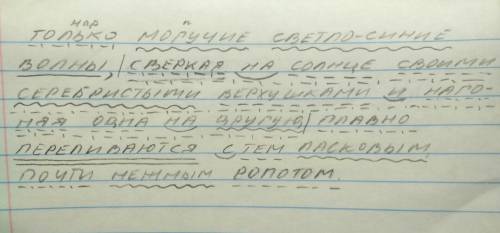 нар п
ТОЛЬКО МОГУЧИЕ СВЕТЛО-СИНИЕ
ВОЛНЫ,/СВЕРКАЯ НА СОЛНЦЕ СВОИМИ
СЕРЕБРИСТЫМИ ВЕРХУШКАМИ И НАГО-
НЯЯ ОДНА НА ДРУГУЮ,/ПЛАВНО
ПЕРЕЛИВАЮТСЯ С ТЕМ ЛАСКОВЫМ,
ПОЧТИ НЕЖНЫМ РОПОТОМ.